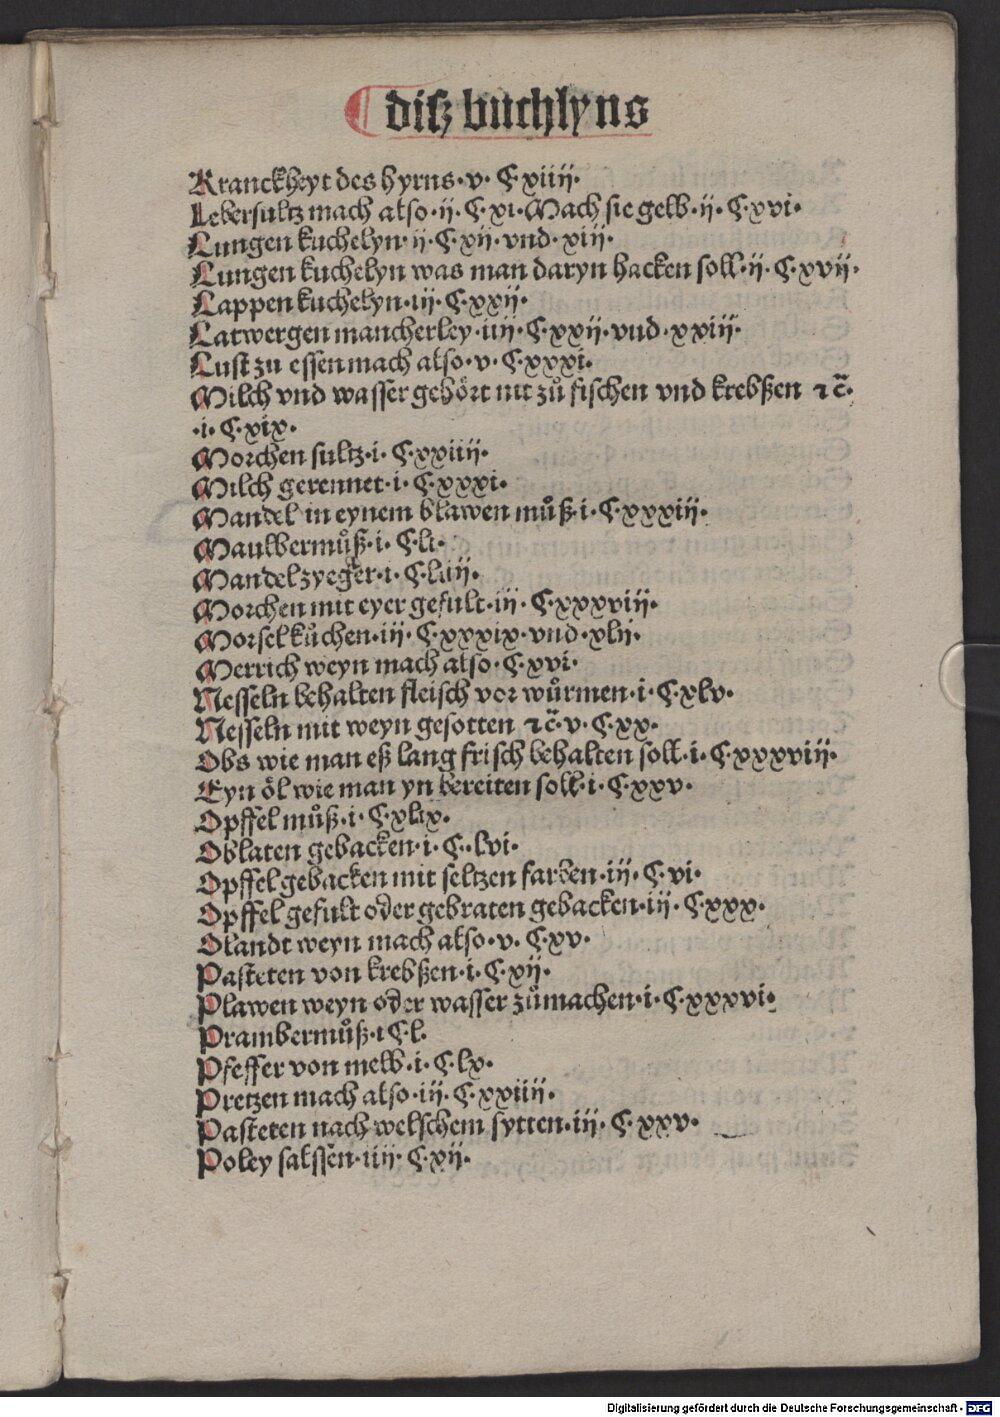 disz buchlyns
Kranckheyt des hyrns·v· C·xiiij·
Lebersultz mach also·ij·C·xi·Mach sie gelb·ij·C·xvi·
Lungen kuchelyn·ij·C·xij·vnd·xiij·
Lungen kuchelyn was man daryn hacken soll·ij·C·xvij·
Lappen kuchelyn·iij·C·xxij·
Latwergen mancherley·iiij·C·xxij·vnd·xxiij·
Lust zu essen mach also·v·C·xxxi·
Milch vnd wasser gehört nit zů fischen vnd krebßen ⁊c̃·
·i·C·xix·
Morchen sultz·i·C·xxiiij·
Milch gerennet·i·C·xxxi·
Mandel in eynem blawen můß·i·C·xxxiij·
Maulbermůß·i·C·li·
Mandelzyeger·i·C·liij·
Morchen mit eyer gefult·iij·C·xxxviij·
Morselkůchen·iij·C·xxxix·vnd·xlij·
Merrich weyn mach also·C·xvi·
Nesseln behalten fleisch vor würmen·i·C·xlv·
Nesseln mit weyn gesotten ⁊c̃·v·C·xx·
Obs wie man eß lang frisch behalten soll·i·C·xxxviij·
Eyn öl wie man yn bereiten soll·i·C·xxv·
Opffel můß·i·C·xlix·
Oblaten gebacken·i·C··lvi·
Opffel gebacken mit seltzen farben·iij·C·vi·
Opffel gefult oder gebraten gebacken·iij·C·xxx·
Olandt weyn mach also·v·C·xv·
Pasteten von krebßen·i·C·xij·
Plawen weyn oder wasser zůmachen·i·C·xxxvi·
Prambermůß·i C·l·
Pfeffer von melb·i·C·lx·
Pretzen mach also·iij·C·xxiiij·
Pasteten nach welschem sytten·iij·C·xxv·
Poley salssen·iiij·C·xij·
Digitalisierung gefördert durch die Deutsche Forschungsgemeinschaft - DFG